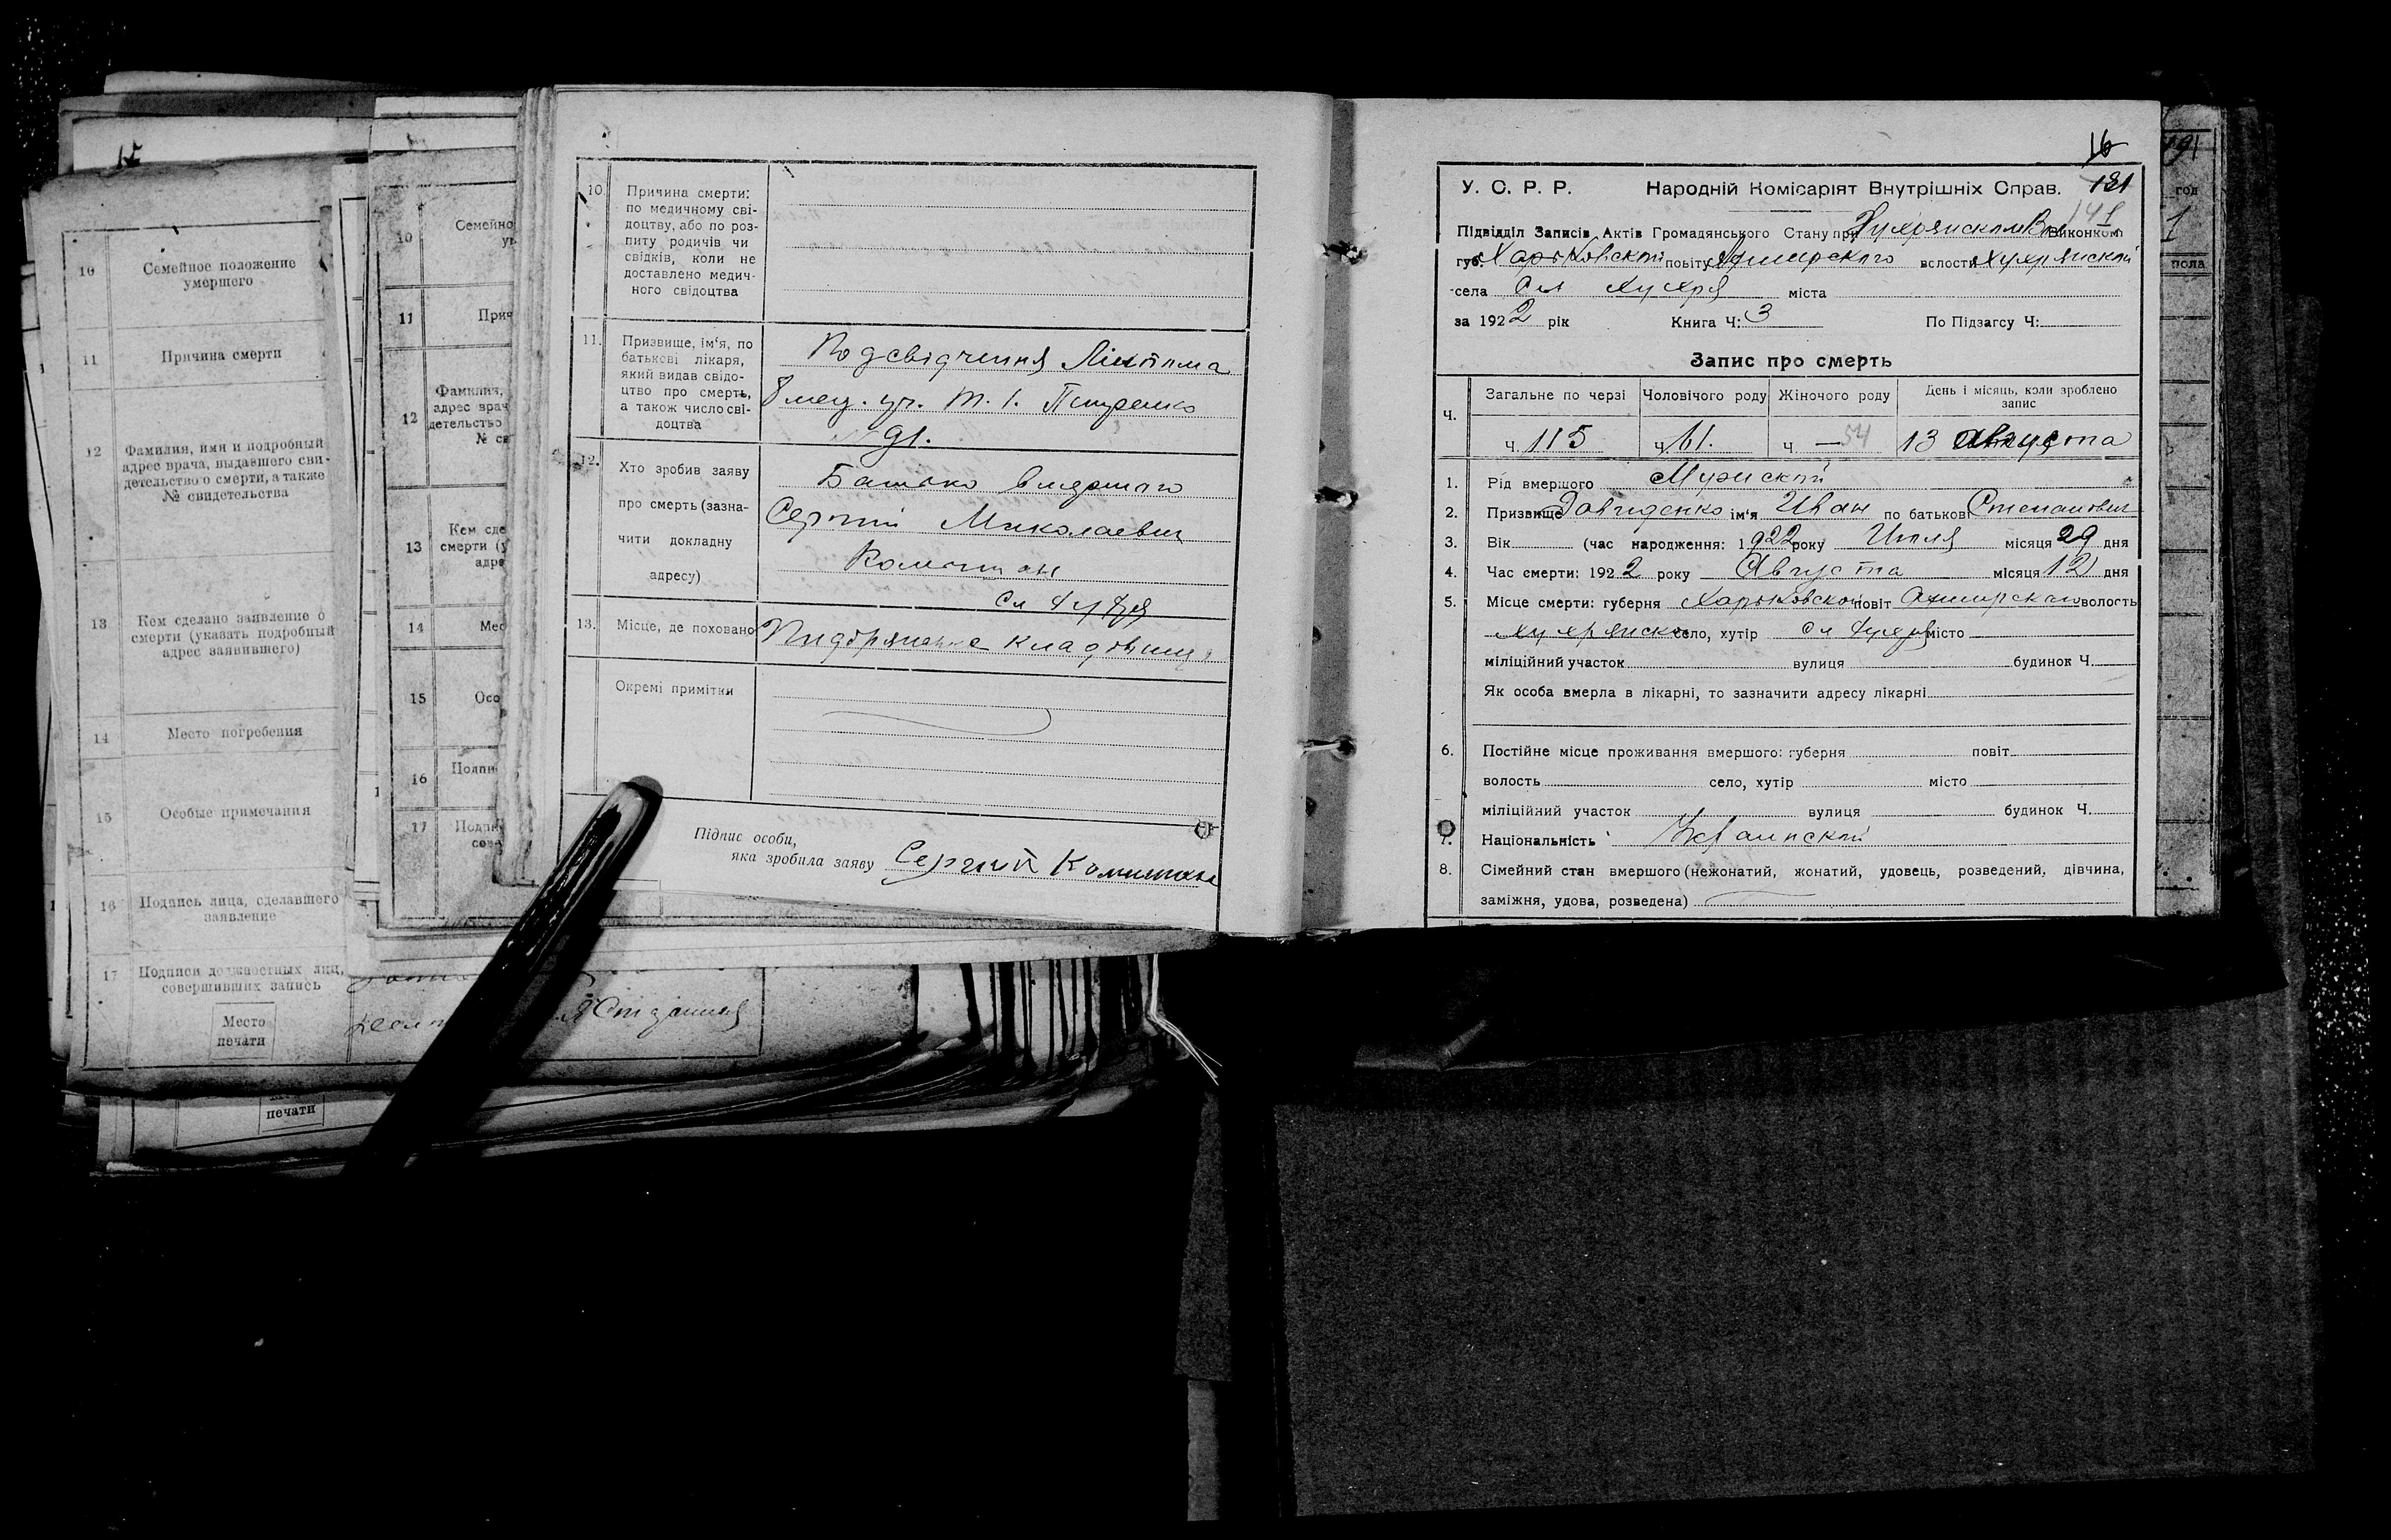 15
10 Семейное положение
умершего
11 Причина смерти
12 Фамилия, имя и подробный
адрес врача, выдавшего сви-
детельство о смерти, а также
№ свидетельства
13 Кем сделано заявление о
смерти (указать подробный
адрес заявившего)
14 Место погребения
15 Особые примечания
16 Подпись лица, сделавшего
заявление
17 Подписи должностных лиц,
совершивших запись
Место
печати
печати
10 Семейно
ум
11 Прич
12 Фамилия,
адрес врач
детельство
№ св
13 Кем сде
смерти (у
адре
14 Мес
15 Осо
16 Подпи
17 Подпи
сов
10. Причина смерти:
по медичному сві-
доцтву, або по роз-
питу родичів чи
свідків, коли не
доставлено медич-
ного свідоцтва
11. Призвище, ім'я, по
батькові лікаря,
який видав свідо-
цтво про смерть,
а також число сві-
доцтва
По дсвідчення Ликпома
8 мец. уч. Т. І. Петренко
№ 91.
12. Хто зробив заяву
про смерть (зазна-
чити докладну
адресу)
Батько вмершаго
Сергий Миколаевич
Комышан
Сл Хухря
13. Місце, де поховано
кладовище
Окремі примітки
Підпис особи,
яка зробила заяву Сергий Комышан
16
У. С. Р. Р. Народній Комісаріят Внутрішніх Справ. 121
141
Підвідділ Записів Актів Громадянського Стану при Хухрянском Вол Виконком
губ. Харьковской повіту Ахтирского волости Хухрянской
села Сл Хухря міста
за 1922 рік Книга Ч: 3 По Підзагсу Ч:
Запис про смерть
Ч. Загальне по черзі Чоловічого роду Жіночого роду День і місяць, коли зроблено
запис
ч. 115 ч. 61. ч — 54 13 Августа
1. Рід вмершого Мужской
2. Призвище Давиденко ім'я Иван по батькові Степанович
3. Вік (час народження: 1922 року Июля місяця 29 дня
4. Час смерти: 1922 року Августа місяця 12 дня
5. Місце смерти: губерня Харьковской повіт Ахтирскаго волость
Хухрянско село, хутір Сл Хухря місто
міліційний участок вулиця будинок Ч.
Як особа вмерла в лікарні, то зазначити адресу лікарні
6. Постійне місце проживання вмершого: губерня повіт
волость село, хутір місто
міліційний участок вулиця будинок Ч.
7. Національність Украинской
8. Сімейний стан вмершого (нежонатий, жонатий, удовець, розведений, дівчина,
заміжня, удова, розведена)
191
год
1
пола